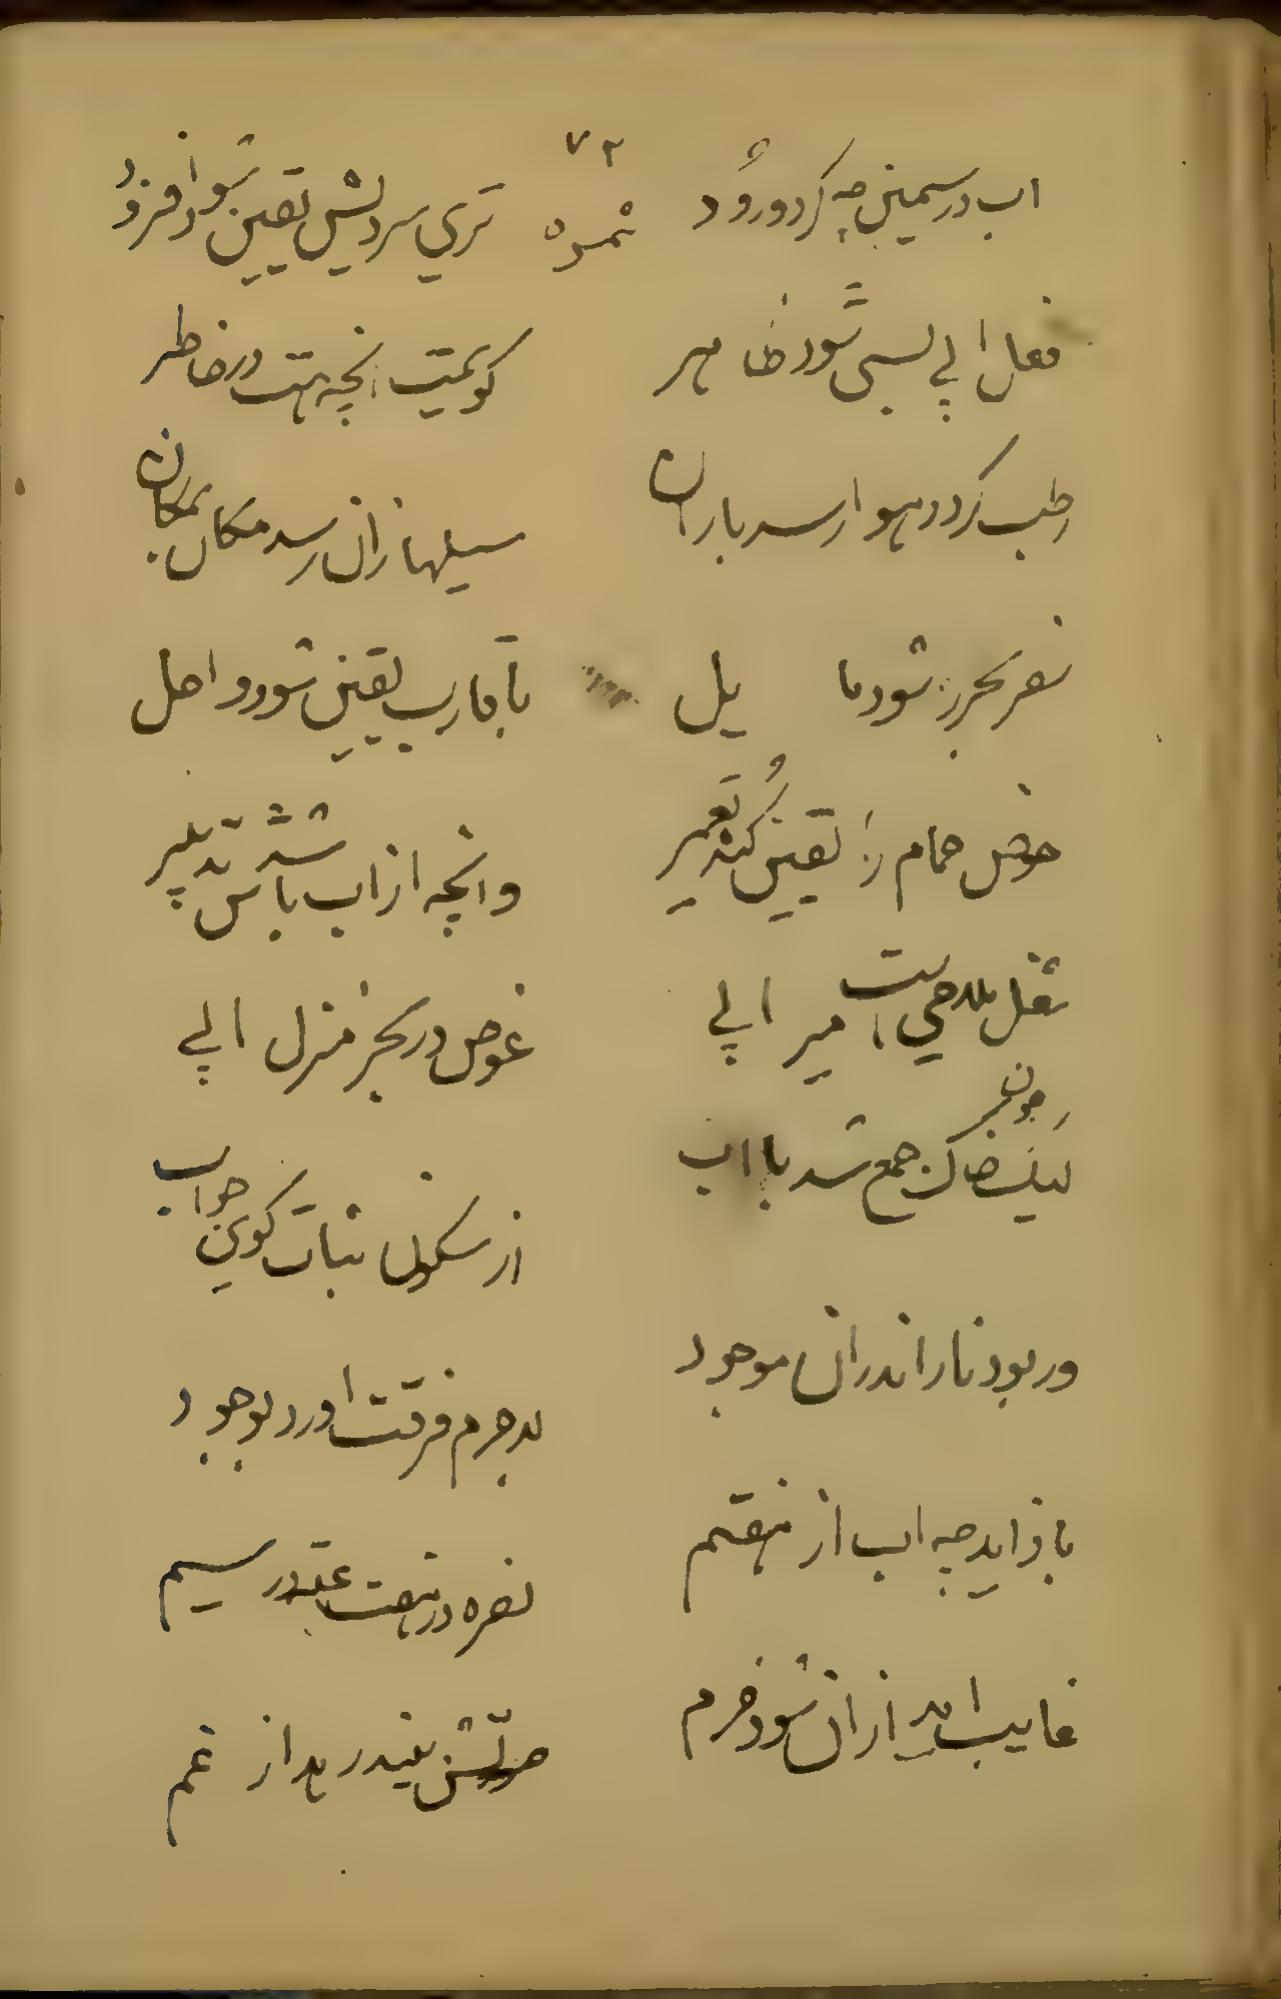 ۷۲
اب در سیمین چه کرد ورود
تری سردیش یقین شود افزود
فعل ابی بسی شود ظاهر
کویمت انچه هست در خاطر
رطب کردد هوا رسد باران
سیلها زان رسد مکان بمکان
سفر بحر نیز شود مایل
باقارب یقین شود واصل
حوض حمام را یقین کند تعمیر
وانچه از اب باشدش تدبیر
شغل ملاحی است امیر ابی
غوص در بحر منزل ابی
لیک چون خاک جمع شد با اب
از سکون ثبات کوی جواب
ور بود نار اندران موجود
بد جرم فرقت اورد بوجود
باز اید چه اب از هفتم
نصره در هفت عقد سیم
غایب اید از ان شود خرم
صورتش بیند رهد از غم